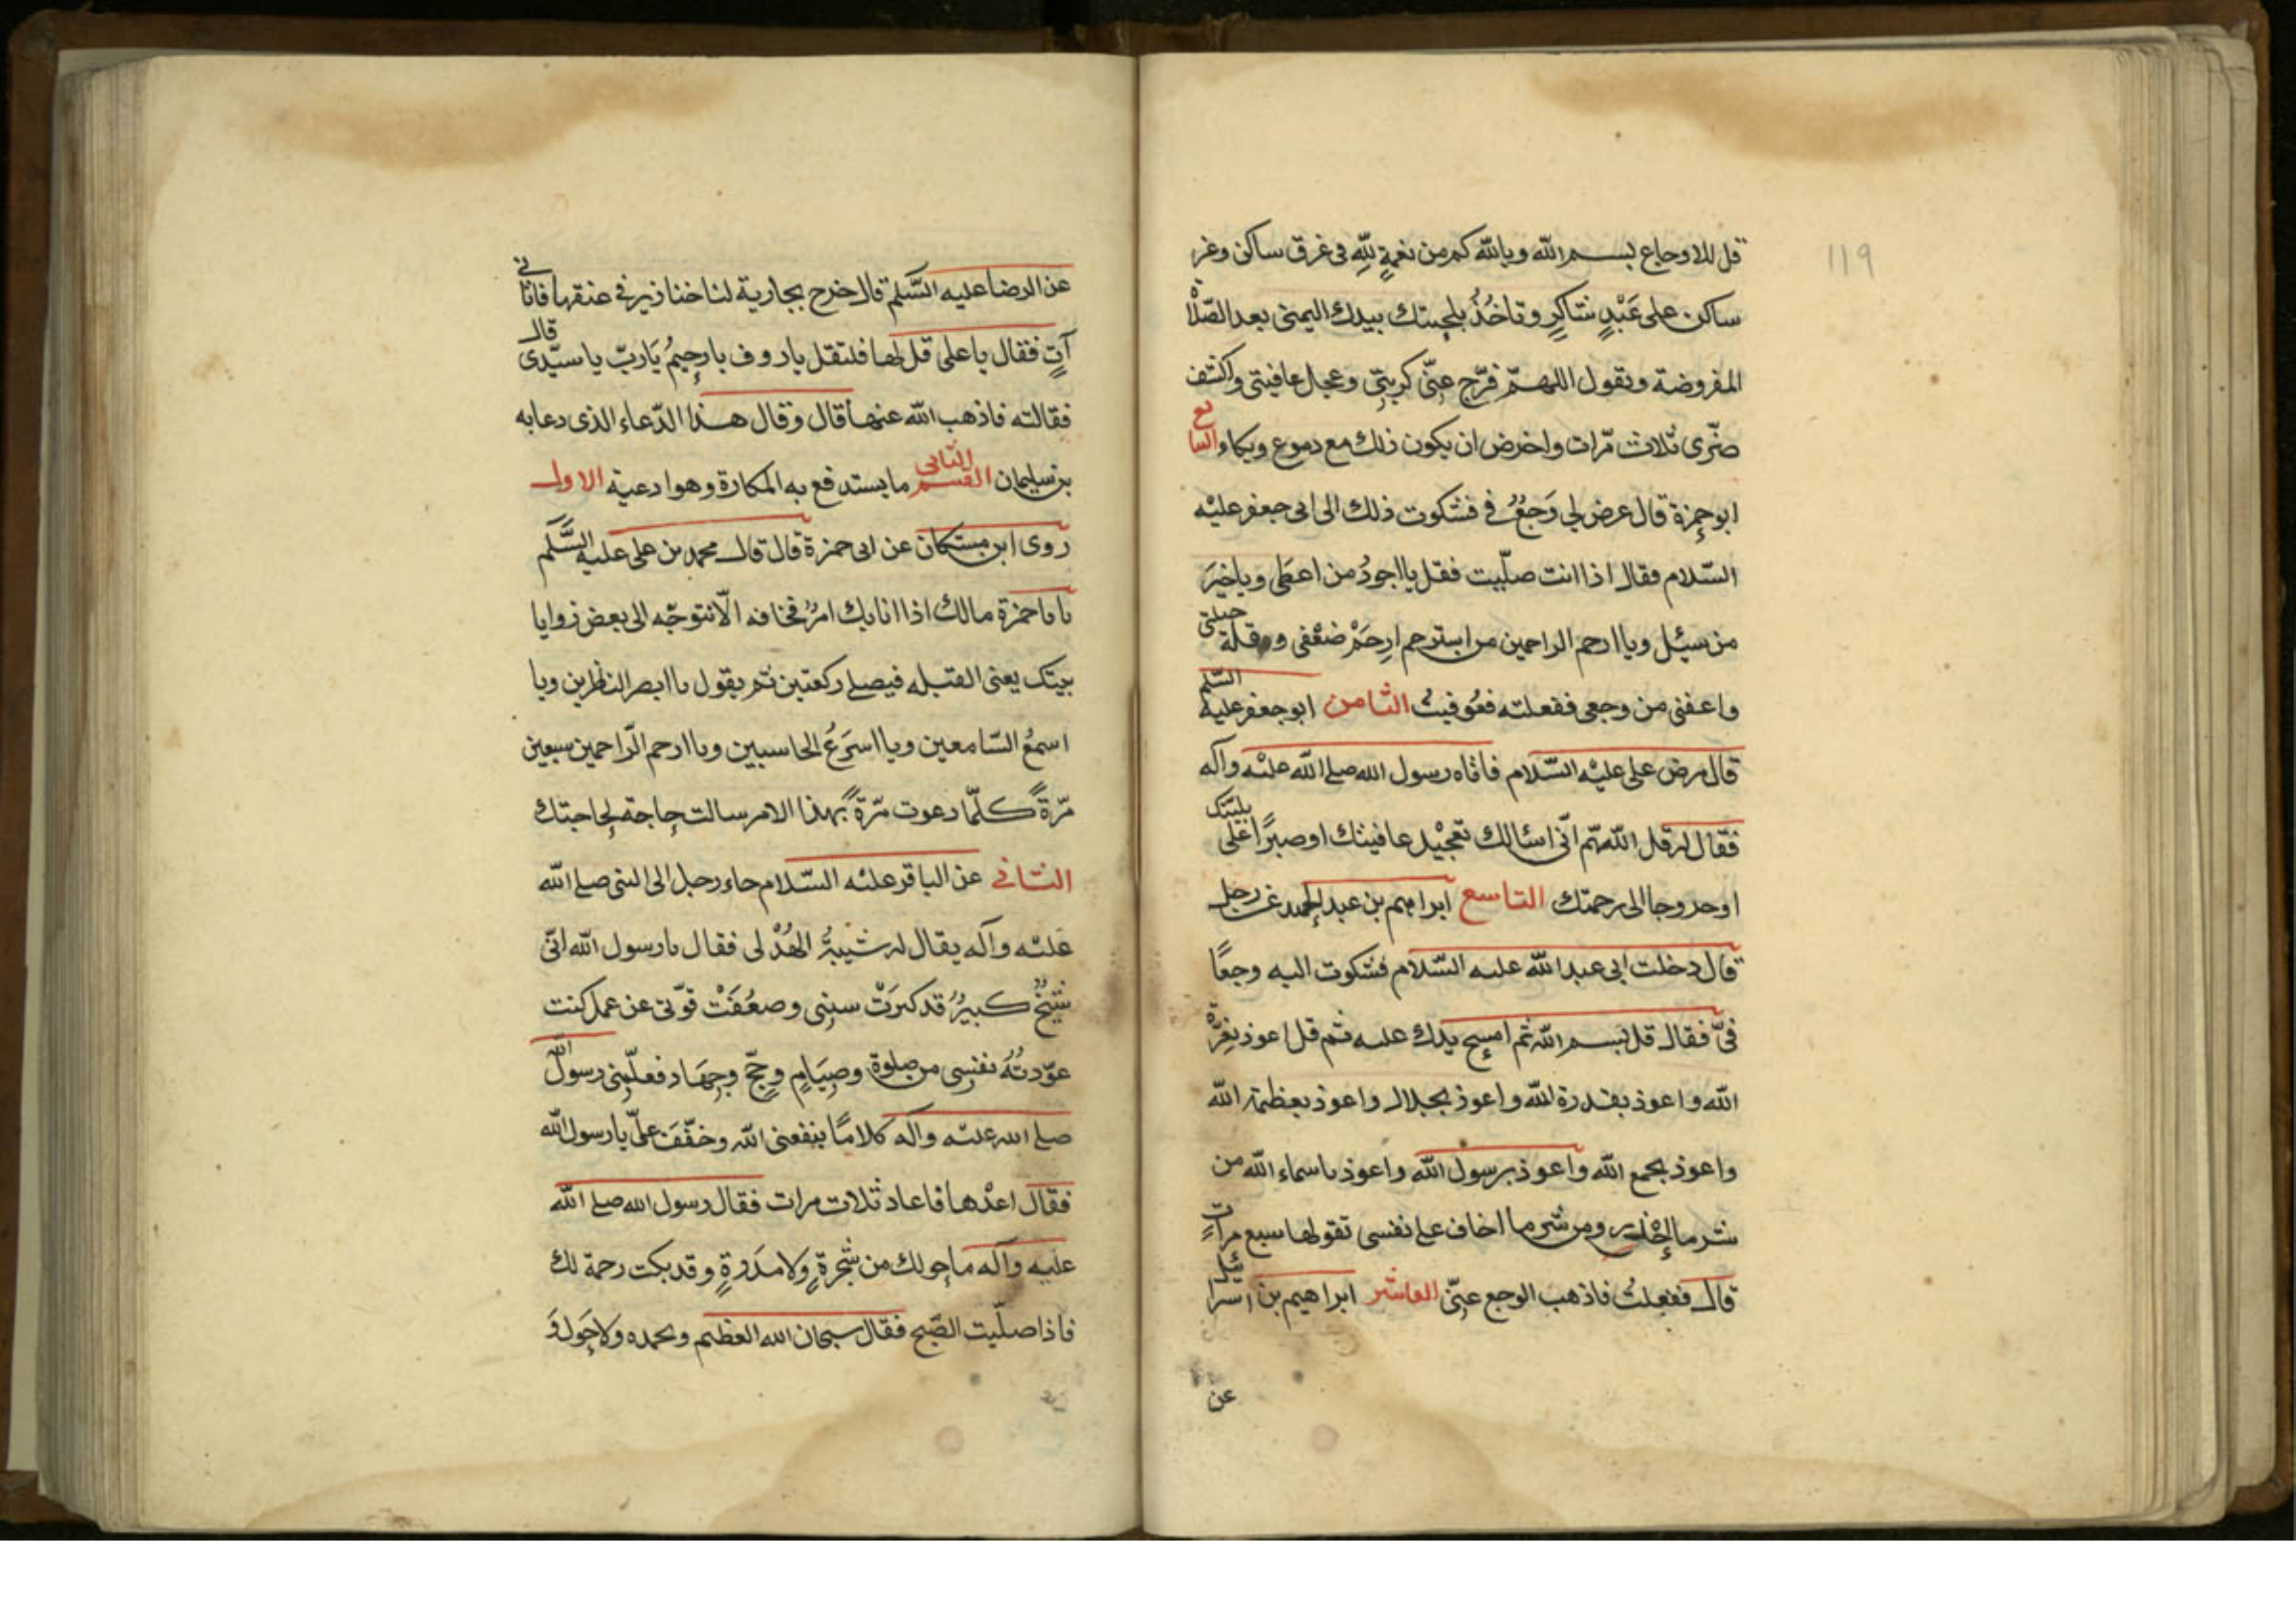 119
قل للاوجاع بسم الله وبالله كم من نعمةٍ لِلّهِ فى عرق ساكن وغير
ساكن على عَبْدٍ شاكرٍ وتاخُذُ بلحيتك بيدك اليمنى بعد الصّلاة
المفروضة وتقول اللهمّ فرّج عنّى كربتى وعجل عافيتى واكشف
ضرّى ثلاث مرّات واحرص ان يكون ذلك مع دموع وبكاء السابع
ابو حمزة قال عرض لى وَجَعٌ فى فشكوت ذلك الى ابى جعفر عليْه
السّلام فقال اذا انت صلّيت فقل يا اجودُ من اعطى ويا خيرَ
من سئِل ويا ارحم الراحمين من استرحم ارحَمْ ضعْفى وقلة حيلتى
واعفنى من وجعى ففعلته فعُوفيتُ الثامن ابو جعفر عليه السّلم
قال مرض على عليْه السّلام فاتاه رسول الله صلى الله عليْه وآله
فقال له قل اللّهمّ انّى اسئالك تعجيْل عافيتك او صبرًا على بليتك
او خروجا الى رحمتك التاسع ابراهيم بن عبد الحميد عن رجل
قال دخلت ابى عبد الله عليه السّلام فشكوت اليه وجعًا
فىّ فقال قل بسم الله ثم امسح يدك عليه ثم قل اعوذ بعِزّة
الله واعوذ بقدرة الله واعوذ بجلال واعوذ بعظمة الله
واعوذ بجمع الله واعوذ برسول الله واعوذ باسماء الله من
شر ما احذر ومن شر ما اخاف على نفسى تقولها سبع مراتٍ
قال ففعلتُ فاذهب الوجع عنّى العاشر ابراهيم بن اسرائيل
عن
عن الرضا عليه السّلم قال خرج بجارية لنا خنازير فى عنقها فاتانى
آتٍ فقال يا على قل لها فلتقل يا روف يا رحيمُ يَا ربّ يا سيّدى قال
فقالته فاذهب الله عنها قال وقال هذا الدّعاء الذى دعا به
بن سليمان القسم الثانى ما يستدفع به المكارة وهو ادعية الاول
روى ابن مسكان عن ابى حمزة قال قال محمد بن على عليه السَّلم
يا با حمزة مالك اذا انابك امرٌ تخافه الّا تتوجّه الى بعض زوايا
بيتك يعنى القبله فيصلى ركعتين ثم يقول يا ابصر الناظرين ويا
اسمعُ السّامعين ويا اسرَعُ الحاسبين ويا ارحم الرّاحمين سبعين
مرّةً كلّما دعوت مرّةً بهذا الامر سالت حاجة لحاجتك
الثانى عن الباقر عليْه السّلام جاء رجل الى النبى صلى الله
عَليْه وآله يقال له شيبةُ الهُذْلى فقال يا رسول الله انّى
شيخٌ كبيرٌ قد كبرَتْ سنى وضعُفَتْ قوّتى عن عمل كنت
عوّدتُهُ نفسى من صلوة وصِيَامٍ وحجّ وجهَاد فعلّمنى رسولُ الله
صلى الله عليْه وآله كلامًا ينفعنى الله وخفّفَ علىّ يا رسول الله
فقال اعدْها فاعاد ثلاث مرات فقال رسول الله صلى الله
عليه وآله ما حولك من شجرةٍ ولا مَدَرةٍ وقد بكت رحمة لك
فاذا صلّيت الصّبح فقال سبحان الله العظيم وبحمده ولا حَول وَ